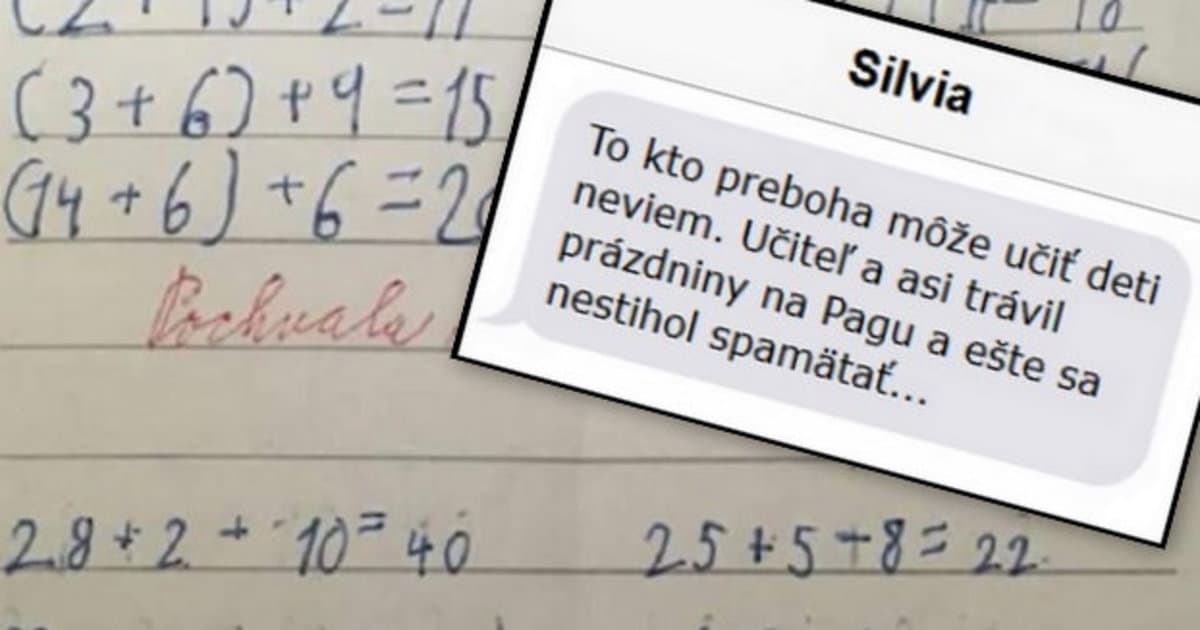 (3 + 6) + 9 = 15
(14 + 6) + 6 = 2
Pochvala
28 + 2 + 10 = 40
25 + 5 - 8 = 22
Silvia
To kto preboha môže učiť deti
neviem. Učiteľ a asi trávil
prázdniny na Pagu a ešte sa
nestihol spamätať...